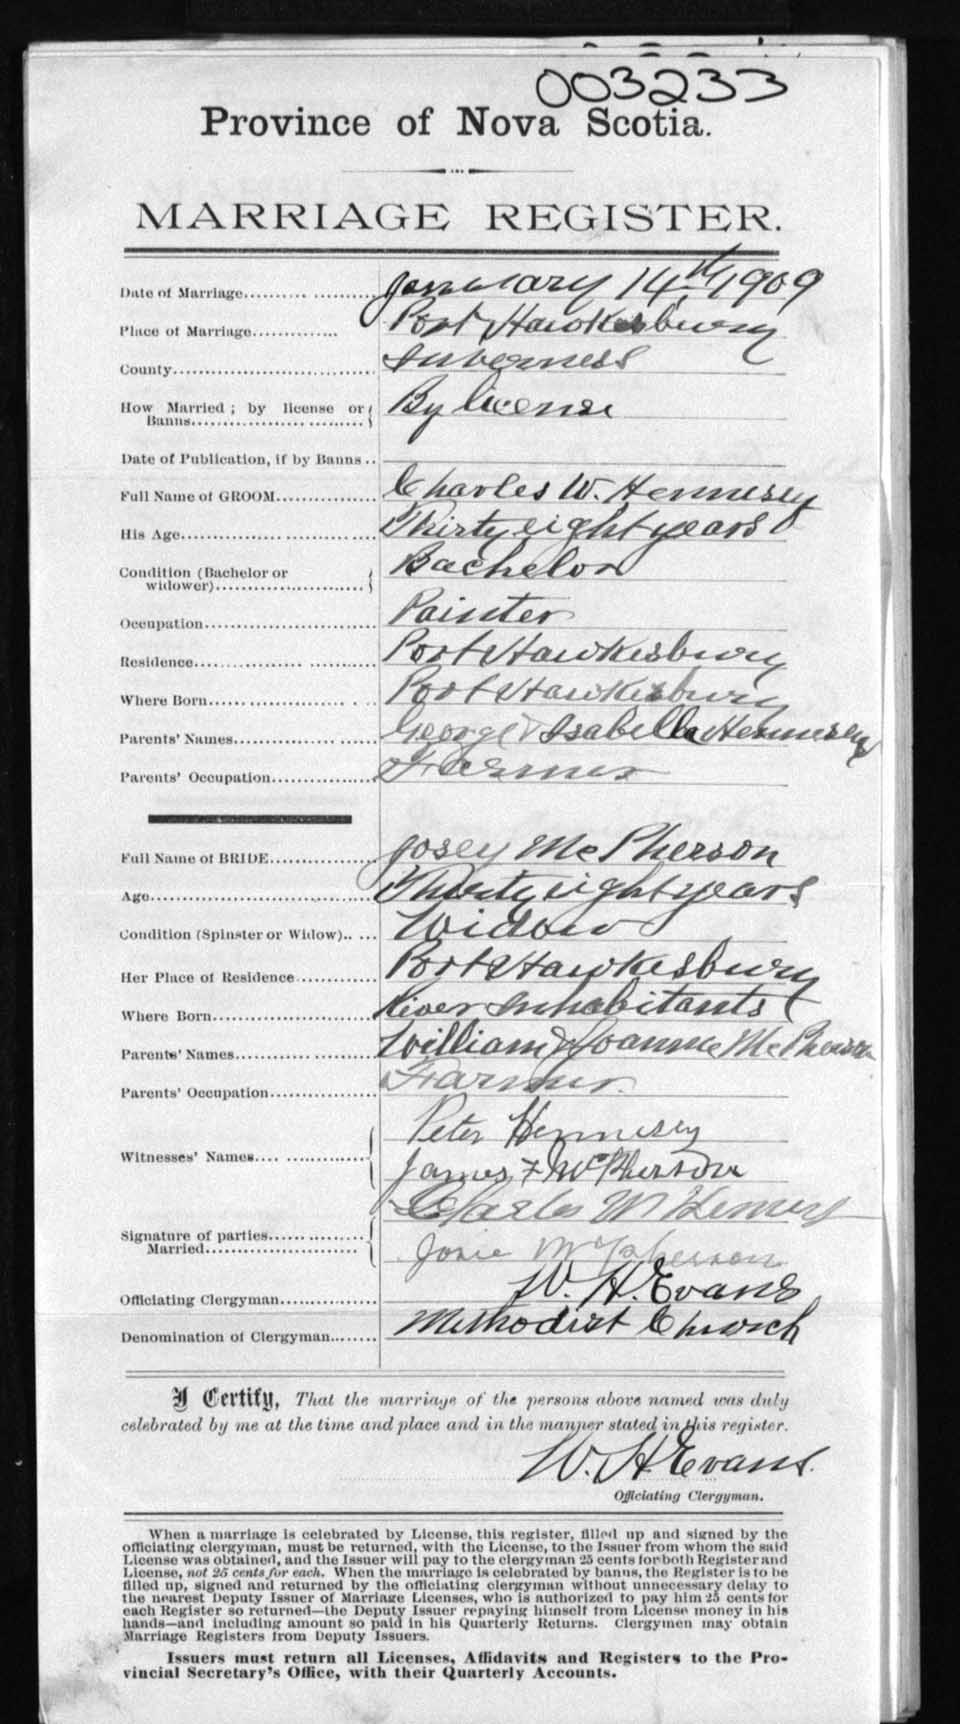 003233
Province of Nova Scotia.
MARRIAGE REGISTER.
Date of Marriage.......... ........... January 14th 1909
Place of Marriage............. Port Hawkesbury
County................................. Inverness
How Married ; by license or By license
Banns...................................
Date of Publication, if by Banns ..
Full Name of GROOM............... Charles W. Hennesey
His Age................................. Thirty eight years
Condition (Bachelor or Bachelor
widower)............................
Occupation............................. Painter
Residence............................... Port Hawkesbury
Where Born............................. Port Hawkesbury
Parents' Names........................ George & Isabella Hennesey
Parents' Occupation................ Farmer
Full Name of BRIDE................. Josey McPherson
Age...................................... Thirty eight years
Condition (Spinster or Widow).. ... Widow
Her Place of Residence............ Port Hawkesbury
Where Born............................ River Inhabitants
Parents' Names....................... William & Joanne McPherson
Parents' Occupation................ Farmer.
Peter Hennesey
Witnesses' Names....................
James F McPherson
Charles W Hennesey
Signature of parties.................
Married............................
Josie McPherson
Officiating Clergyman............... W. H. Evans
Denomination of Clergyman....... Methodist Church
I Certify, That the marriage of the persons above named was duly
celebrated by me at the time and place and in the manner stated in this register.
W. H. Evans.
Officiating Clergyman.
When a marriage is celebrated by License, this register, filled up and signed by the
officiating clergyman, must be returned, with the License, to the Issuer from whom the said
License was obtained, and the Issuer will pay to the clergyman 25 cents for both Register and
License, not 25 cents for each. When the marriage is celebrated by banns, the Register is to be
filled up, signed and returned by the officiating clergyman without unnecessary delay to
the nearest Deputy Issuer of Marriage Licenses, who is authorized to pay him 25 cents for
each Register so returned—the Deputy Issuer repaying himself from License money in his
hands—and including amount so paid in his Quarterly Returns. Clergymen may obtain
Marriage Registers from Deputy Issuers.
Issuers must return all Licenses, Affidavits and Registers to the Pro-
vincial Secretary's Office, with their Quarterly Accounts.